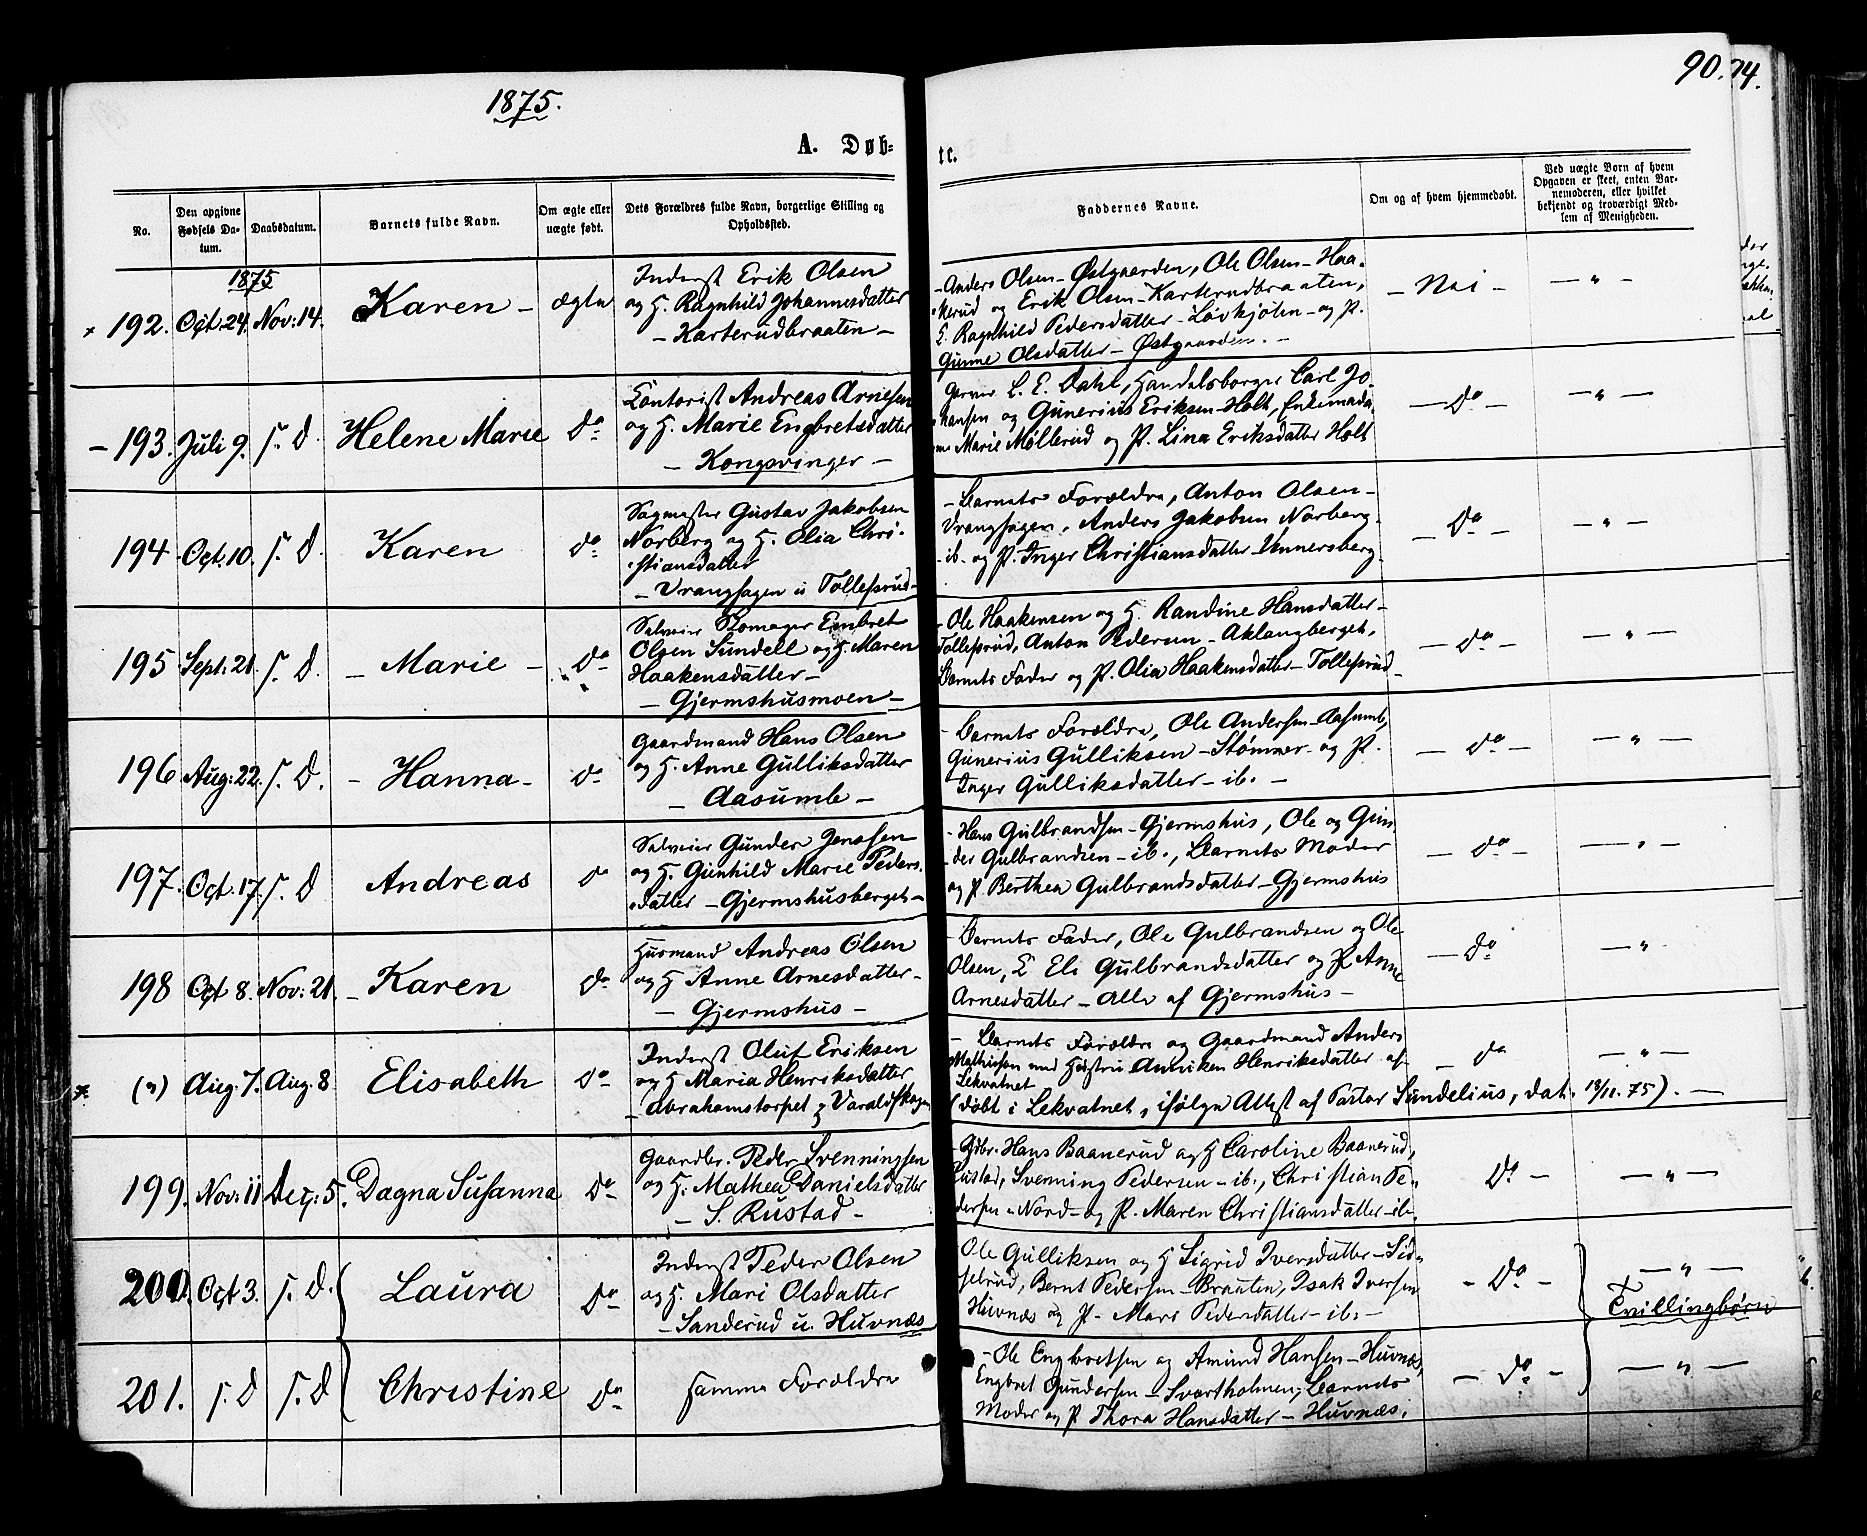 1875.
90.
94.
A. Døb-
te.
No.
Den opgivne Fødsels Datum.
Daabsdatum.
Barnets fulde Navn.
Om ægte eller uægte født.
Dets Forældres fulde Navn, borgerlige Stilling og Opholdssted.
Faddernes Navne.
Om og af hvem hjemmedøbt.
Ved uægte Børn af hvem Opgaven er skeet, enten Barnemoderen, eller hvilket bekjendt og troværdigt Medlem af Menigheden.
1875
192. Oct. 24. Nov: 14. Karen – ægte
Inderst Erik Olsen
og H. Ragnhild Johannesdatter
– Karterudbraaten –
– Anders Olsen – Østgaarden, Ole Olsen – Haa-
kerud og Erik Olsen – Karterudbraaten,
E. Ragnhild Pedersdatter – Løvhjøten – og P.
Gunne Olsdatter – Østgaarden. –
– Nei – – " –
– 193. Juli 9. s. D. Helene Marie do
Contorist Andreas Arnesen
og H. Marie Engbretsdatter
– Kongsvinger –
Garver L. E. Dahl, Handelsborger Carl Jo-
hansen og Gunerius Eriksen – Holt, Enkemada-
me Marie Møllerud og P. Lina Eriksdatter Holt
– do – – " –
194 Oct. 10. s. D. Karen do
Sagmester Gustav Jakobsen
Norberg og H. Olia Chri-
stiansdatter
– Vrangsagen u Tollefsrud –
– Barnets Forældre, Anton Olsen –
Vrangsagen, Anders Jakobsen Norberg
– ib. og P. Inger Christiansdatter – Unnersberg
– do – – " –
195 Sept: 21. s. D. – Marie – do
Selveier Skomager Embret
Olsen Sundell og H. Maren
Haakensdatter –
– Gjermshusmoen –
– Ole Haakensen og H. Randine Hansdatter –
Tollefsrud, Anton Pedersen – Aklangberget,
Barnets Fader og P. Olia Haakensdatter – Tollefsrud –
– do – – " –
196 Aug: 22. s. D. – Hanna – do
Gaardmand Hans Olsen
og H. Anne Gulliksdatter
– Aasumb –
– Barnets Forældre, Ole Andersen – Aasumb,
Gunerius Gulliksen – Stømner – og P.
Inger Gulliksdatter – ib. –
– do – – " –
197. Oct. 17. s. D Andreas do
Selveier Gunder Jenssen
og H. Gunhild Marie Peders-
datter – Gjermshusberget –
– Hans Gulbrandsen – Gjermshus, Ole og Gun-
der Gulbrandsen – ib., Barnets Moder
og P. Berthea Gulbrandsdatter – Gjermshus
– do – – " –
198 Oct 8. Nov: 21. – Karen do
Husmand Andreas Olsen
og H Anne Arnesdatter –
– Gjermshus –
– Barnets Fader, Ole Gulbrandsen og Ole
Olsen, E Eli Gulbrandsdatter og P Anne
Arnesdatter – Alle af Gjermshus –
– do – "
(n) Aug: 7. Aug: 8 Elisabeth do
Inderst Oluf Eriksen
og H Maria Henriksdatter
– Abrahamstorpet p Varaldskogen
– Barnets Forældre og Gaardmand Anders
Mathiesen med Hustru Anniken Henriksdatter af
Lekvatnet
(døbt i Lekvatnet, ifølge Attest af Pastor Sundelius, dat. 18/11. 75). –
– do – " –
199. Nov: 11 Dec: 5. Dagna Susanna do
Gaardbr. Peder Svenningsen
og H. Mathea Danielsdatter
– S. Rustad –
– Gdbr. Hans Baanerud og H Caroline Baanerud,
Rustad, Svenning Pedersen – ib., Christian Pe-
dersen – Nord – og P. Maren Christiansdatter – ib.
do – – " –
200. Oct 3. s. D. Laura do
Inderst Peder Olsen
og H. Mari Olsdatter
– Sanderud u. Huvnæs
Ole Gulliksen og H Sigrid Iversdatter – Sid-
selrud, Bernt Pedersen – Braaten, Isak Iversen
Huvnæs og P. Mari Pedersdatter – ib. –
– do – – " –
Tvillingbørn
201. s. D s. D Christine do
samme Forældre
– Ole Engbretsen og Amund Hansen – Huvnæs,
Engbret Gundersen – Svartholmen, Barnets
Moder og P. Thora Hansdatter – Huvnæs.
– do – – " –